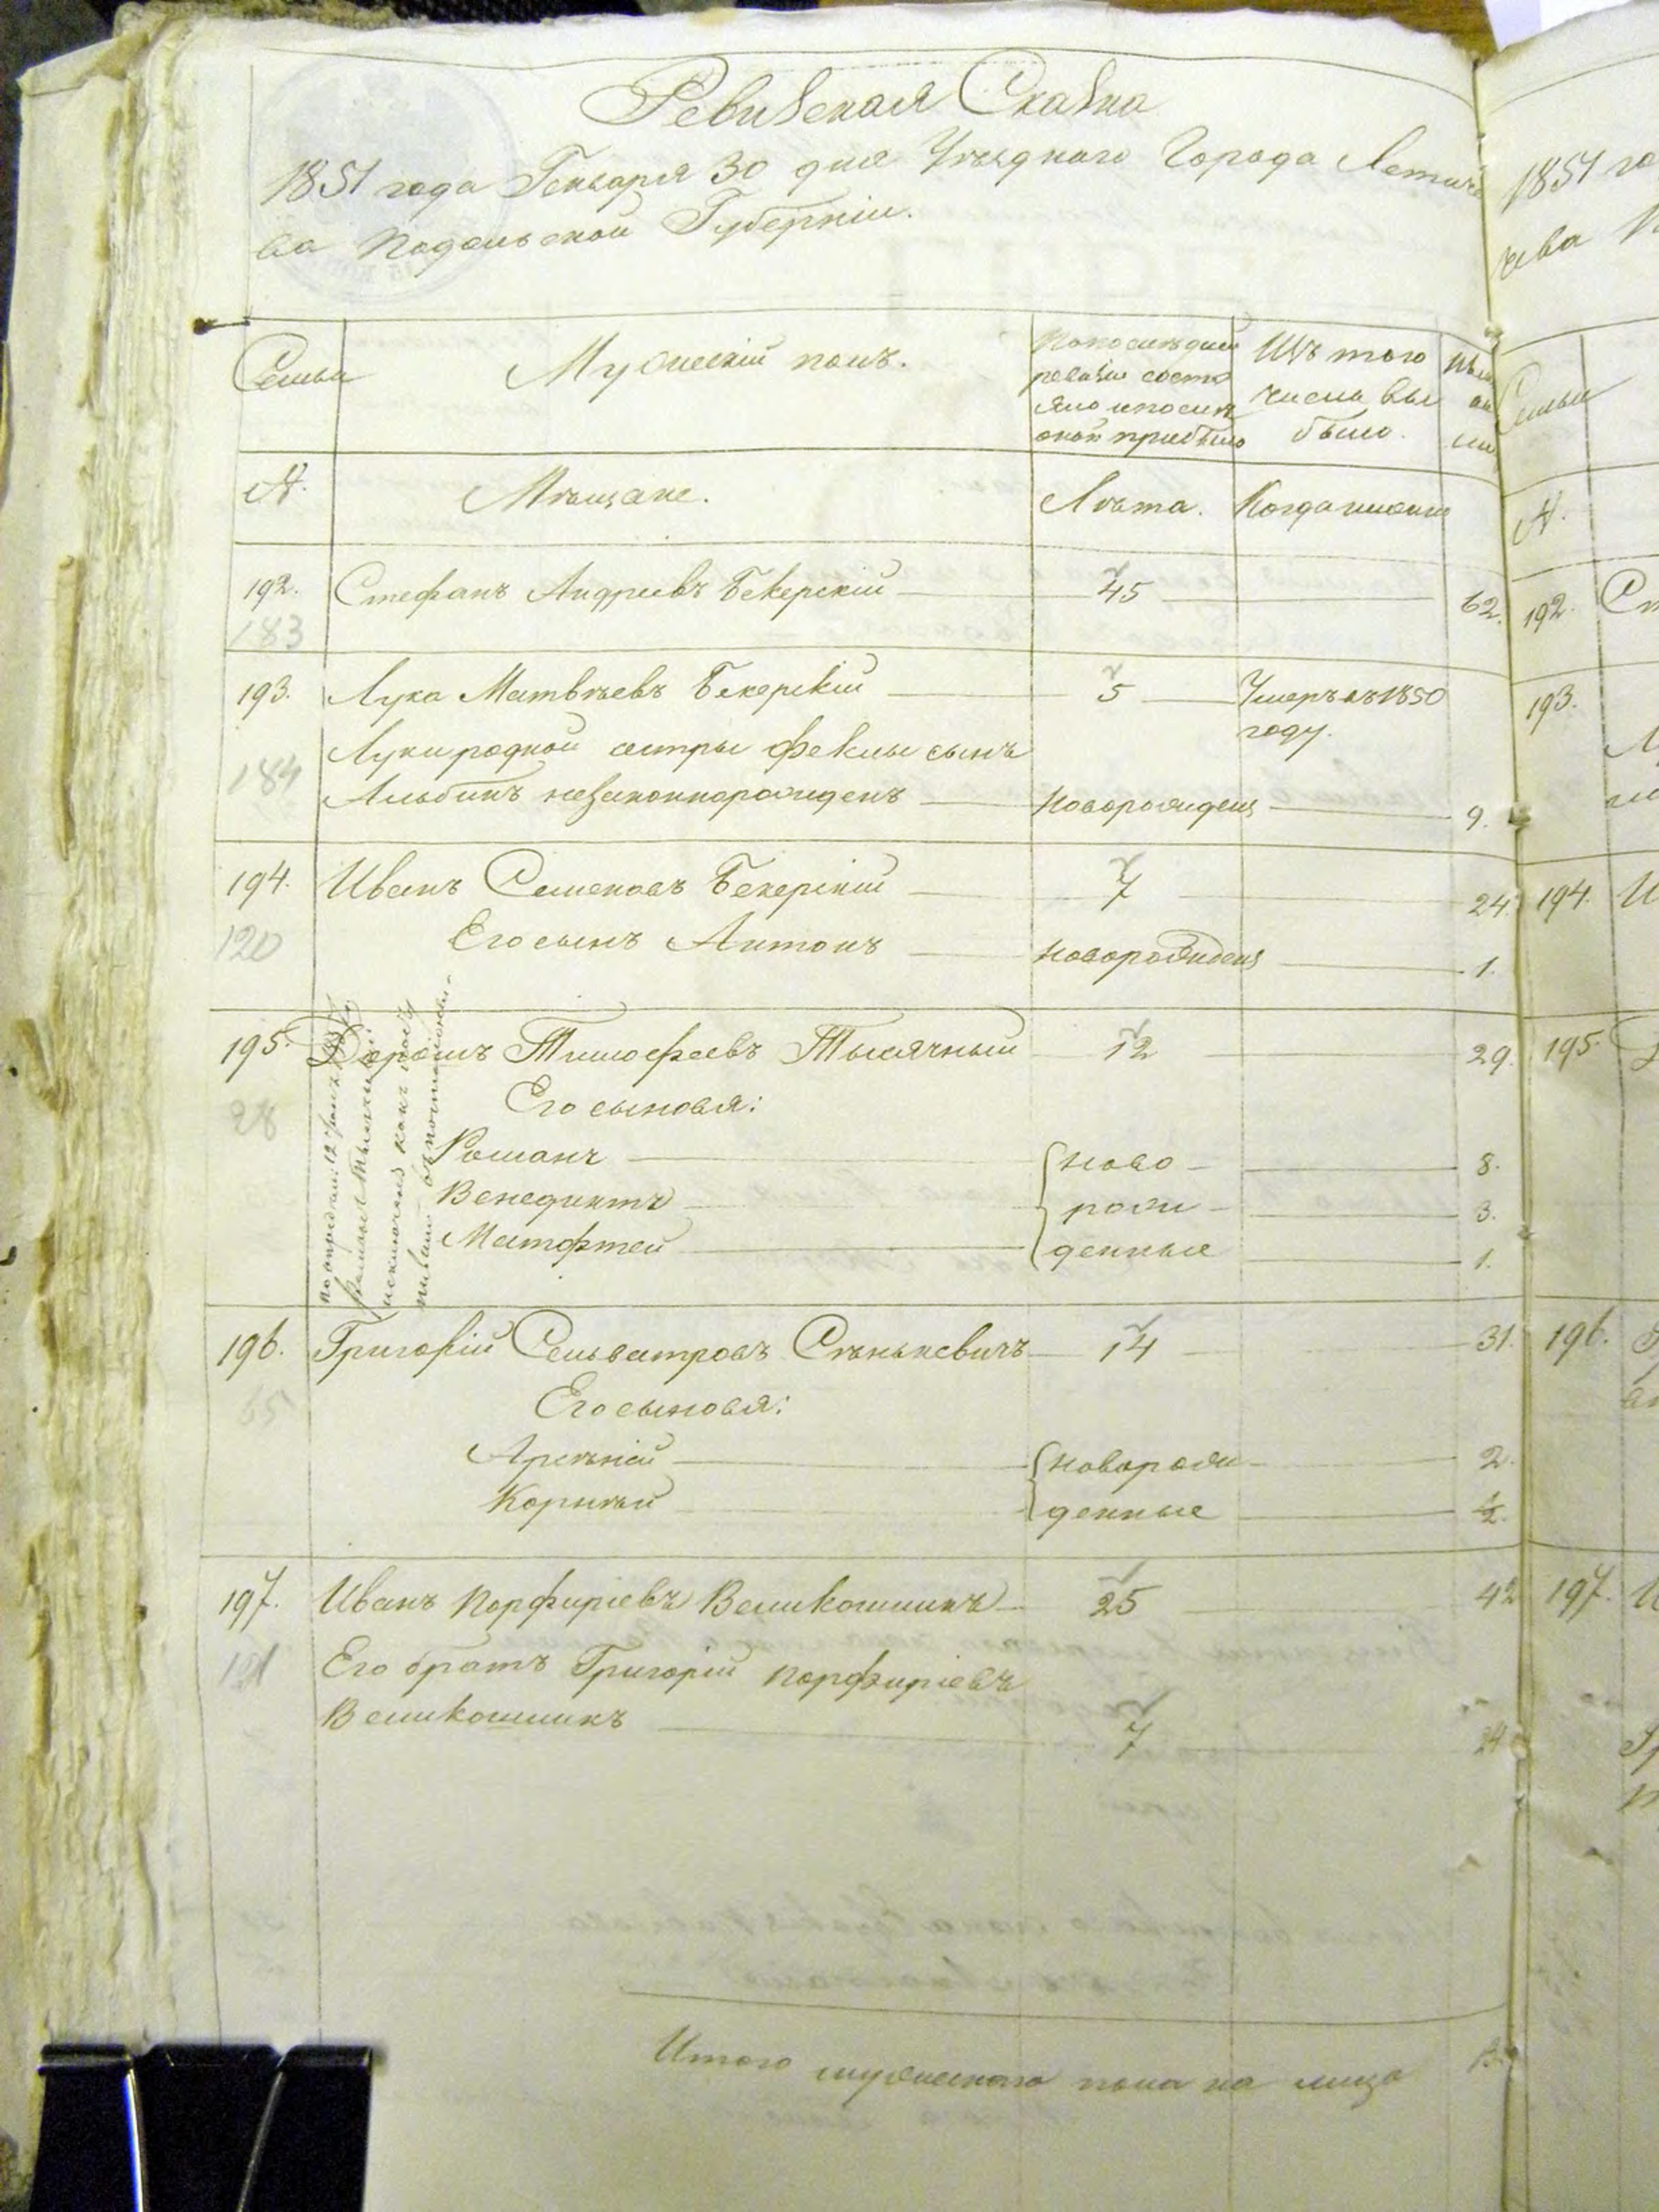 Ревизская Сказка
1851 года Генваря 30 дня Уѣзднаго Города Летиче
ва Подольской Губерніи.
Семьи
Мужескій полъ.
По последней
ревизіи состо
яло и после
оной прибыло
Изъ того
числа вы
было.
Нынѣ
на
ли
№.
Мѣщане.
Лѣта.
Когда именно
192. Стефанъ Андреевъ Бекерскій 45 62.
183
193. Лука Матвѣевъ Бекерскій 5 Умеръ въ 1850
году.
Луки родной сестры Феклы сынъ
184
Альбинъ незаконнорожденъ новорожденъ 9.
194. Иванъ Семеновъ Бекерскій 7 24.
120
Его сынъ Антонъ новорожденъ 1.
195. Тимофеевъ Тысячный 12 29.
28
Его сыновья:
Романъ ново 8.
Венедиктъ рож 3.
Матфтей денные 1.
196. Григорій Сельвестровъ Стѣнькевичъ 14 31.
65
Его сыновья:
Арсѣній новорож 2.
Корнѣй денные ½.
197. Иванъ Порфиріевъ Великошникъ 25 42
121
Его братъ Григорій Порфиріевъ
Великошникъ 7 24
Итого мужескаго пола на лицо
1851 го
чева
Семьи
№.
192. Ст
193.
194. И
195.
196.
197. И